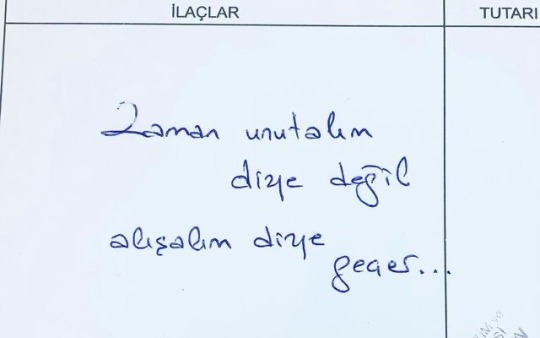 İLAÇLAR TUTARI
Zaman unutalım
diye değil
alışalım diye
geçer...